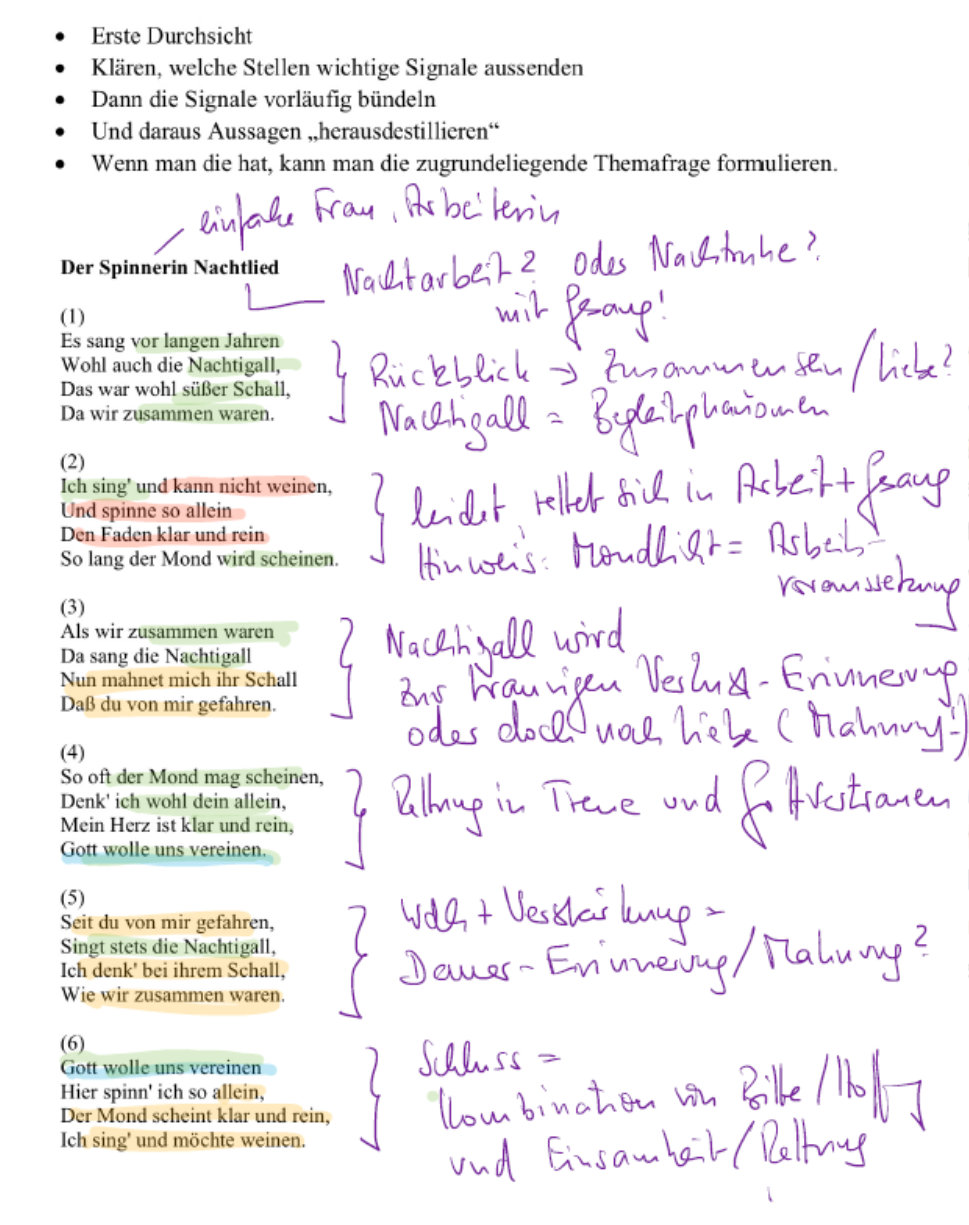 • Erste Durchsicht
• Klären, welche Stellen wichtige Signale aussenden
• Dann die Signale vorläufig bündeln
• Und daraus Aussagen „herausdestillieren“
• Wenn man die hat, kann man die zugrundeliegende Themafrage formulieren.
einfache Frau, Arbeiterin
Der Spinnerin Nachtlied
Nachtarbeit? oder Nachtruhe?
mit Gesang!
(1)
Es sang vor langen Jahren
Wohl auch die Nachtigall,
Das war wohl süßer Schall,
Da wir zusammen waren.
Rückblick → Zusammensein/Liebe?
Nachtigall = Begleitphänomen
(2)
Ich sing' und kann nicht weinen,
Und spinne so allein
Den Faden klar und rein
So lang der Mond wird scheinen.
leidet, rettet sich in Arbeit + Gesang
Hinweis: Mondlicht = Arbeits-
voraussetzung
(3)
Als wir zusammen waren
Da sang die Nachtigall
Nun mahnet mich ihr Schall
Daß du von mir gefahren.
Nachtigall wird
zur traurigen Verlust-Erinnerung
oder doch noch Liebe (Mahnung!)
(4)
So oft der Mond mag scheinen,
Denk' ich wohl dein allein,
Mein Herz ist klar und rein,
Gott wolle uns vereinen.
Rettung in Treue und Gottvertrauen
(5)
Seit du von mir gefahren,
Singt stets die Nachtigall,
Ich denk' bei ihrem Schall,
Wie wir zusammen waren.
Wdh + Verstärkung =
Dauer-Erinnerung/Mahnung?
(6)
Gott wolle uns vereinen
Hier spinn' ich so allein,
Der Mond scheint klar und rein,
Ich sing' und möchte weinen.
Schluss =
Kombination von Bitte/Hoffg
und Einsamkeit/Rettung